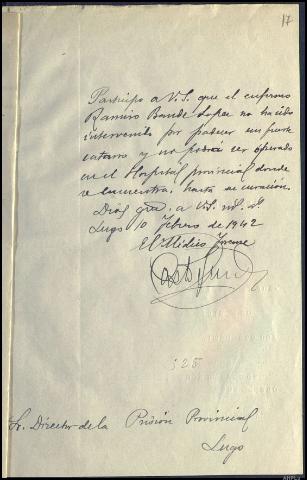 17
Participo a V.S. que el enfermo
Ramiro Bande Lopez no ha sido
intervenido por padecer un fuerte
catarro y no podrá ser operado
en el Hospital provincial donde
se encuentra, hasta su curación.
Dios gue. a V.S. ms. as.
Lugo 10 Febrero de 1942
El Médico Forense
325
Sr. Director de la Prisión Provincial
Lugo
AHPLU